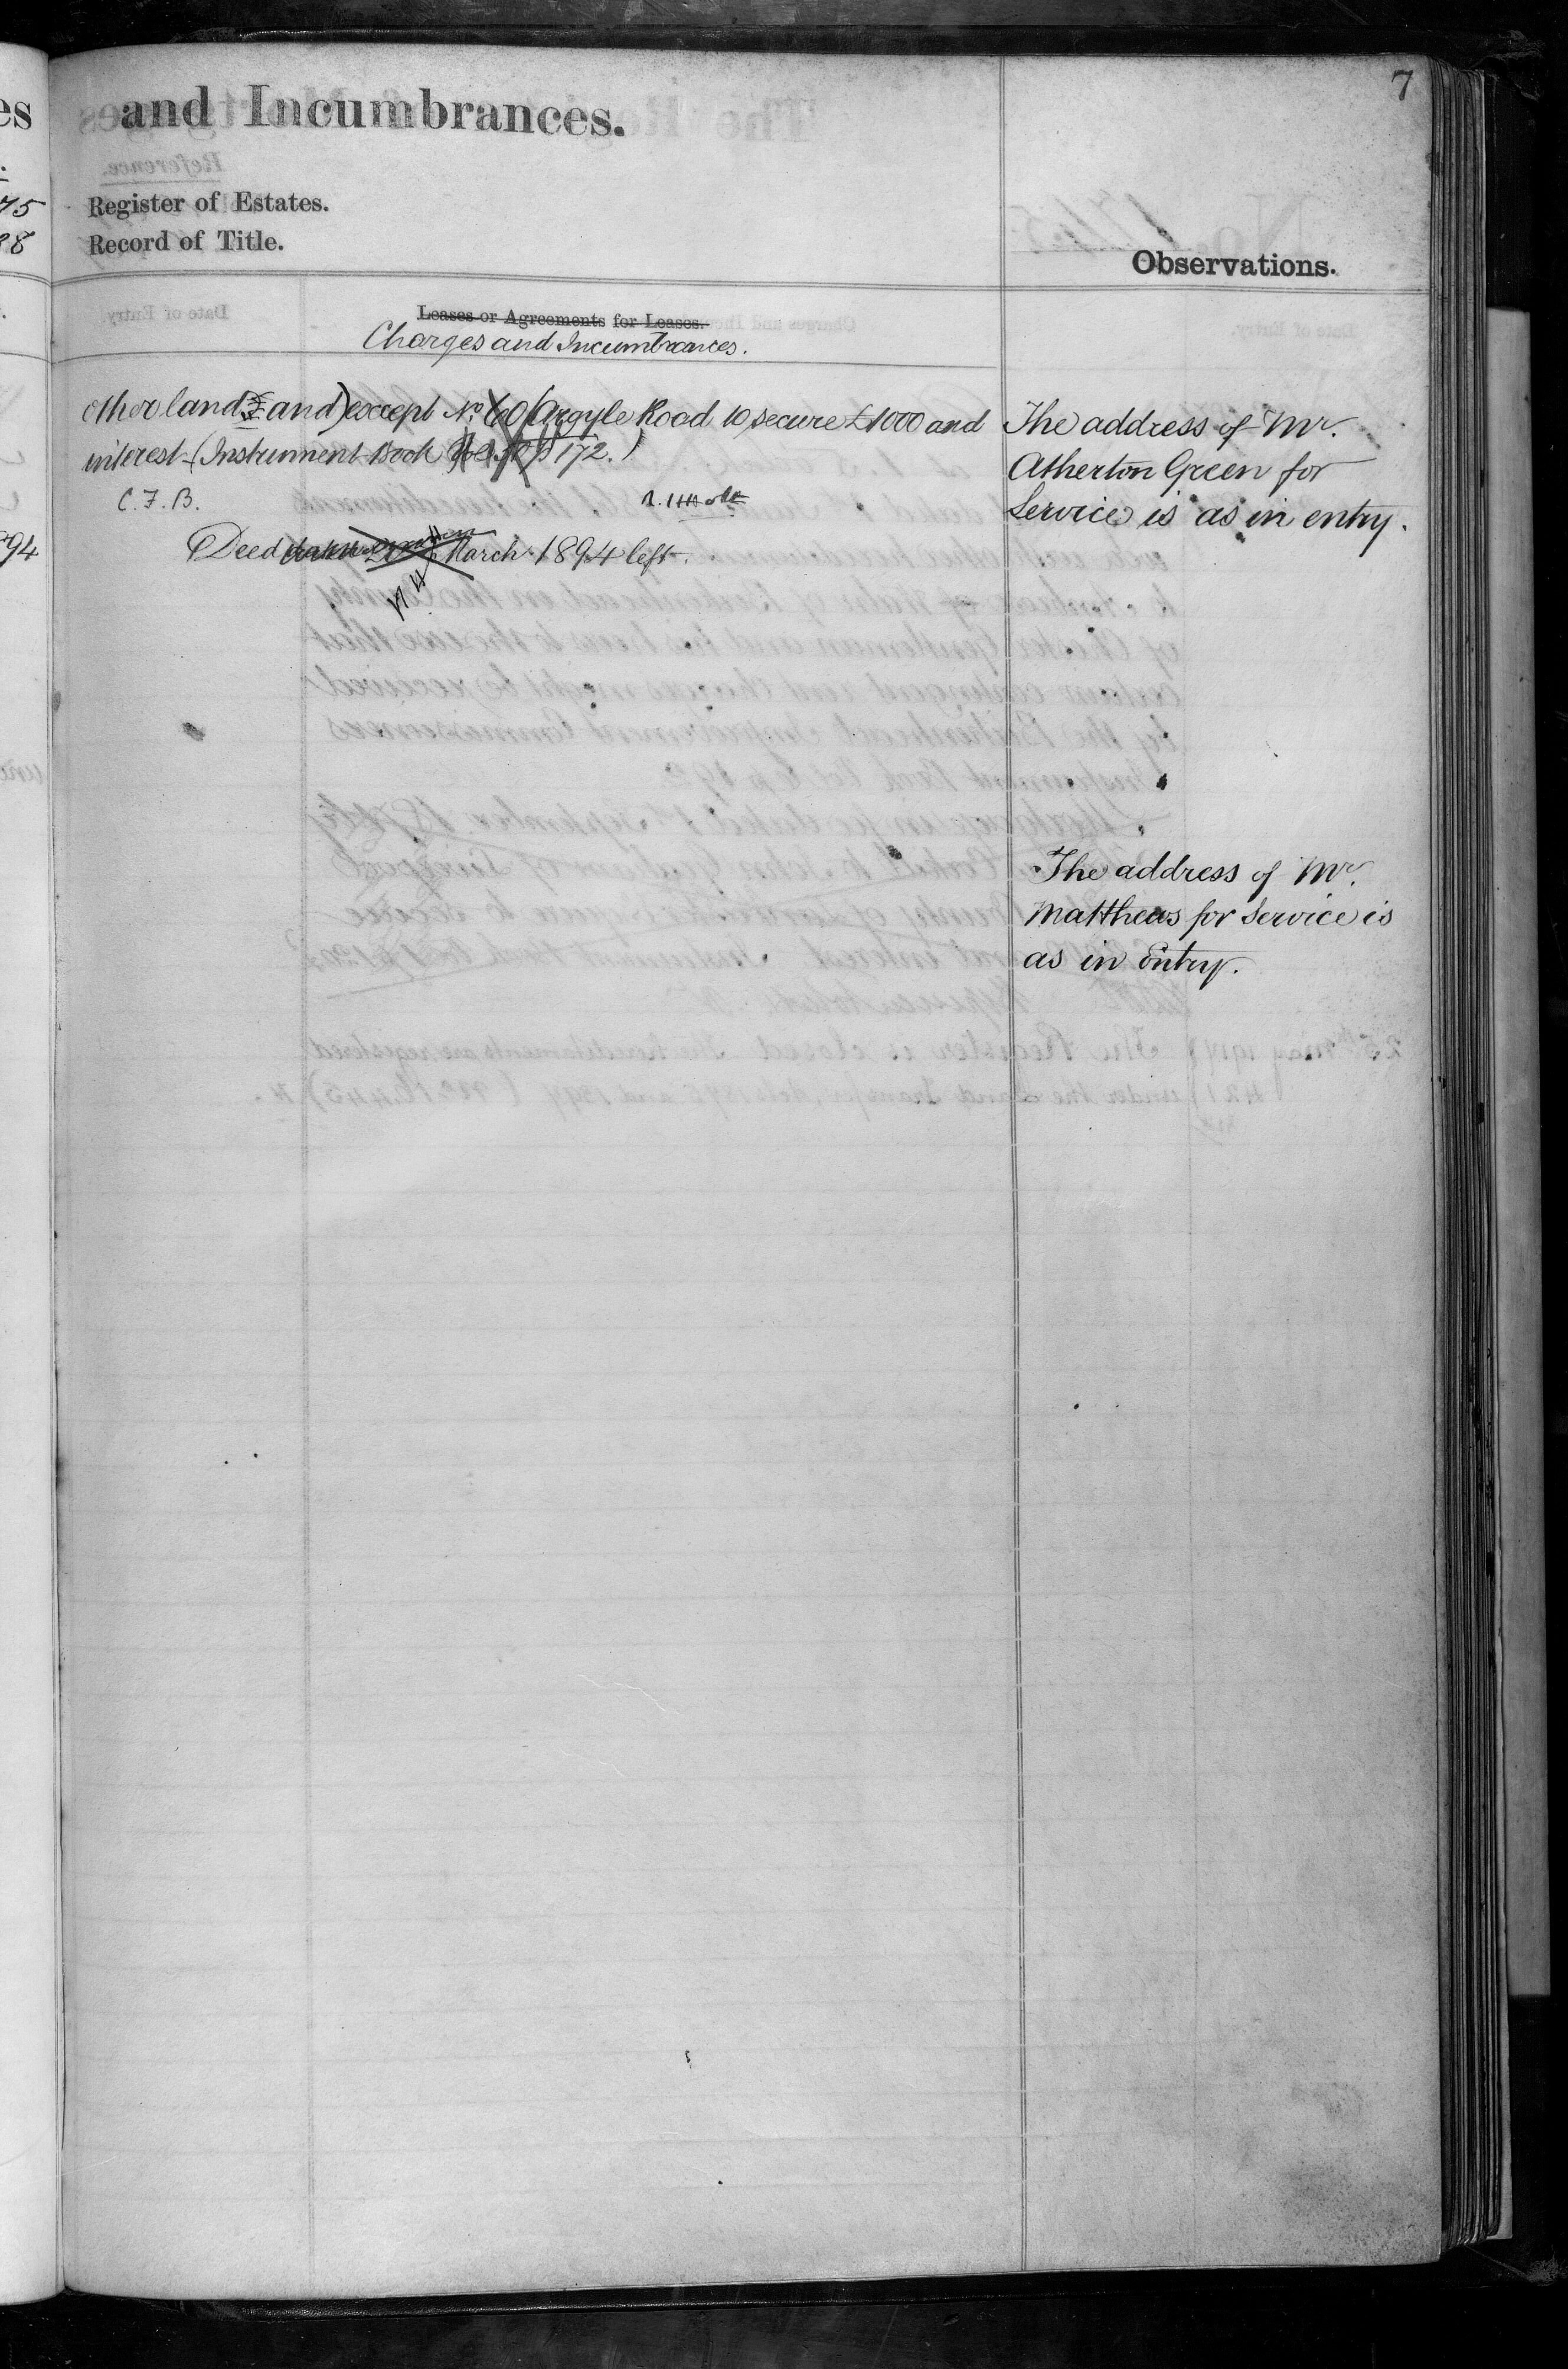 7
and Incumbrances.
Register of Estates.
Record of Title.
Observations.
Leases or Agreements for Leases.
Charges and Incumbrances.
other land and) except No. 60 Argyle Road to secure £1000 and
interest (Instrument Book p 172.)
C.F.B.
Deed March 1894 left.
The address of Mr.
Atherton Green for
Service is as in entry.
The address of Mr.
Matthews for Service is
as in Entry.
es
75
38
94